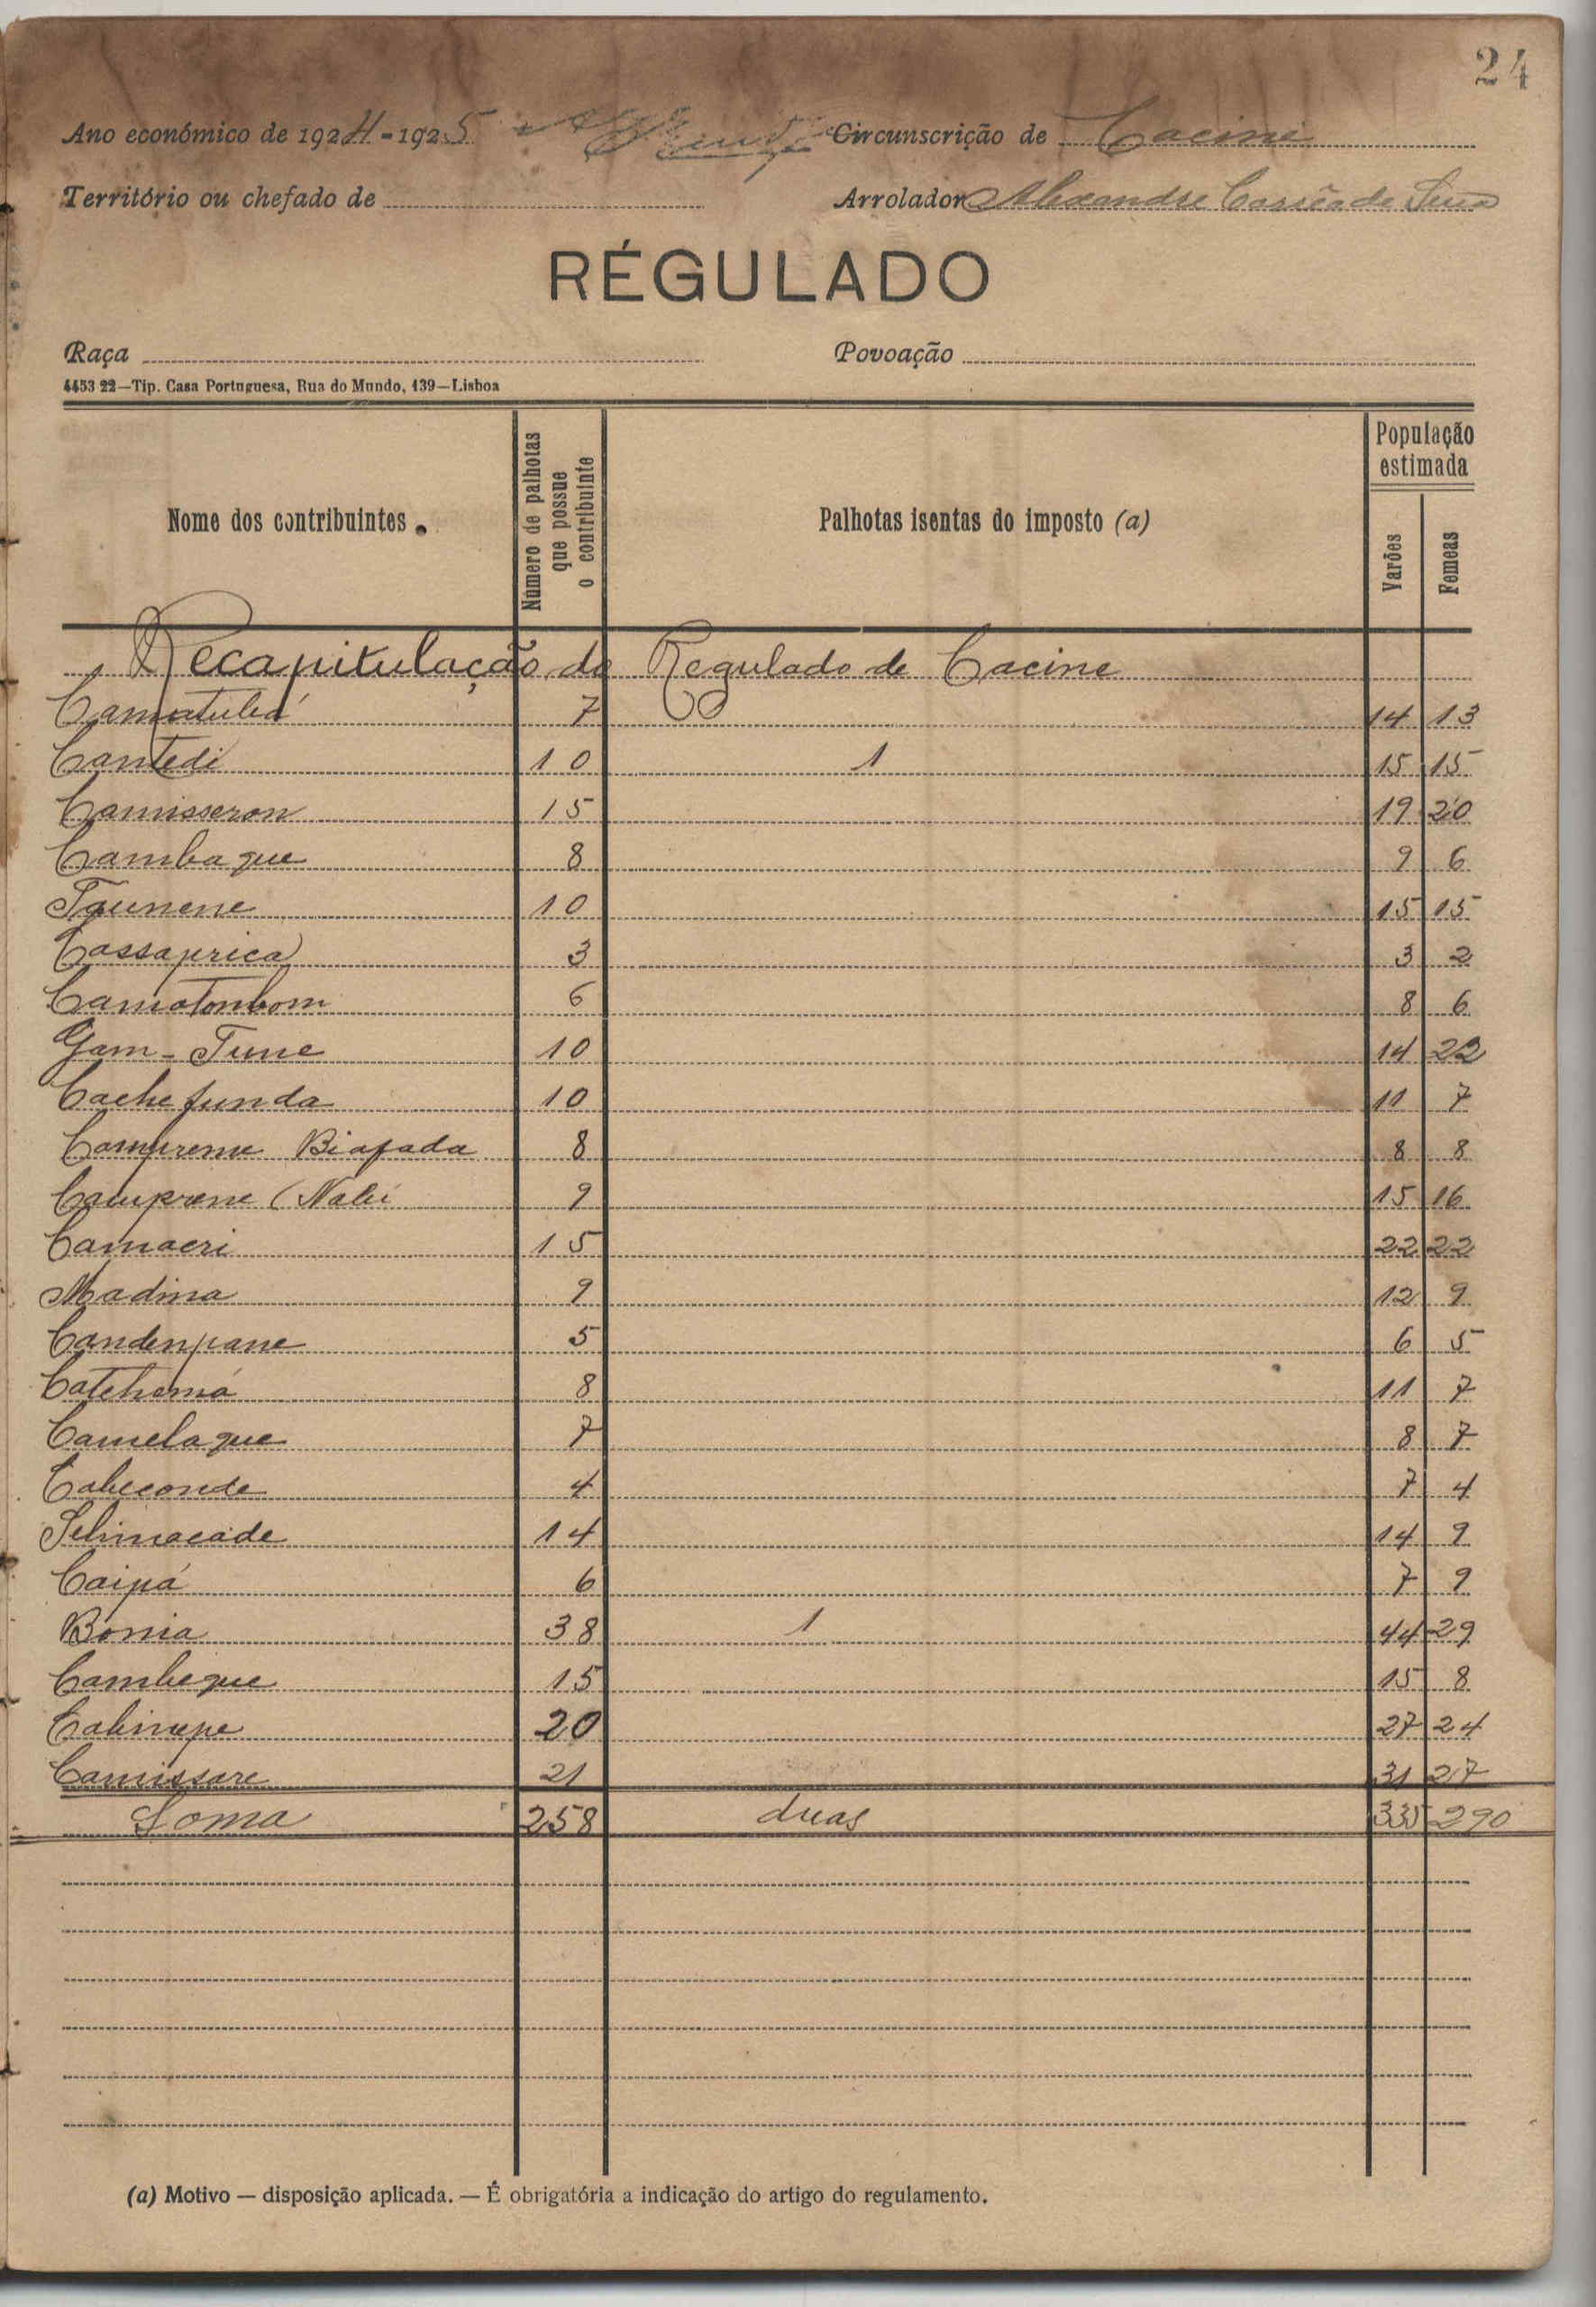 24
Ano económico de 1924-1925 Circunscrição de Cacine
Território ou chefado de Arrolador Alexandre Corrêa de
RÉGULADO
Raça Povoação
4453 22—Tip. Casa Portuguesa, Rua do Mundo, 139—Lisboa
Nome dos contribuintes Número de palhotas que possue o contribuinte Palhotas isentas do imposto (a) População estimada Varões Femeas
Recapitulação do Regulado de Cacine
Camatubá 7 14 13
Cantedi 10 1 15 15
Camisseron 15 19 20
Cambaque 8 9 6
10 15 15
Cassaprica 3 3 2
Camotombom 6 8 6
Gam-Tune 10 14 22
Cachefunda 10 11 7
Camprene Biafada 8 8 8
Camprene (Nalú 9 15 16
Camacri 15 22 22
Madina 9 12 9
Candenpane 5 6 5
Catchamá 8 11 7
Camelaque 7 8 7
Cabeconde 4 7 4
14 14 9
Caipá 6 7 9
Bomia 38 1 44 29
Cambeque 15 15 8
Cabinepe 20 27 24
Camissore 21 31 27
Soma 258 duas 335 290
(a) Motivo — disposição aplicada. — É obrigatória a indicação do artigo do regulamento.